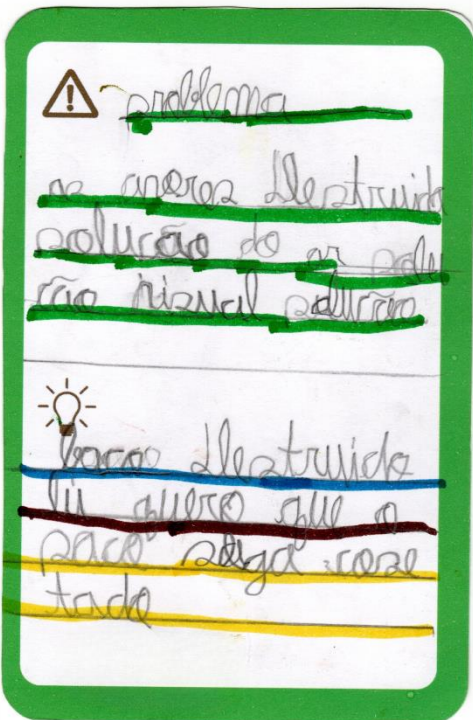 problema
as avores destruida
polucão do ar polu
cão visual polurão
baco destruido
Eu quero que o
paco sega cose
tado